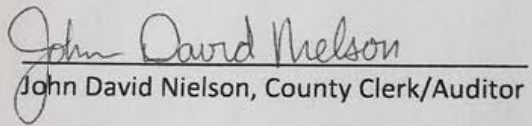 John David Nielson
John David Nielson, County Clerk/Auditor